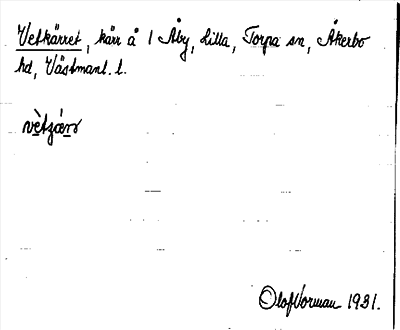 Vetkärret, kärr å 1 Åby, Lilla, Torpa sn, Åkerbo
hd, Västmanl. l.
Olof Norman 1931.